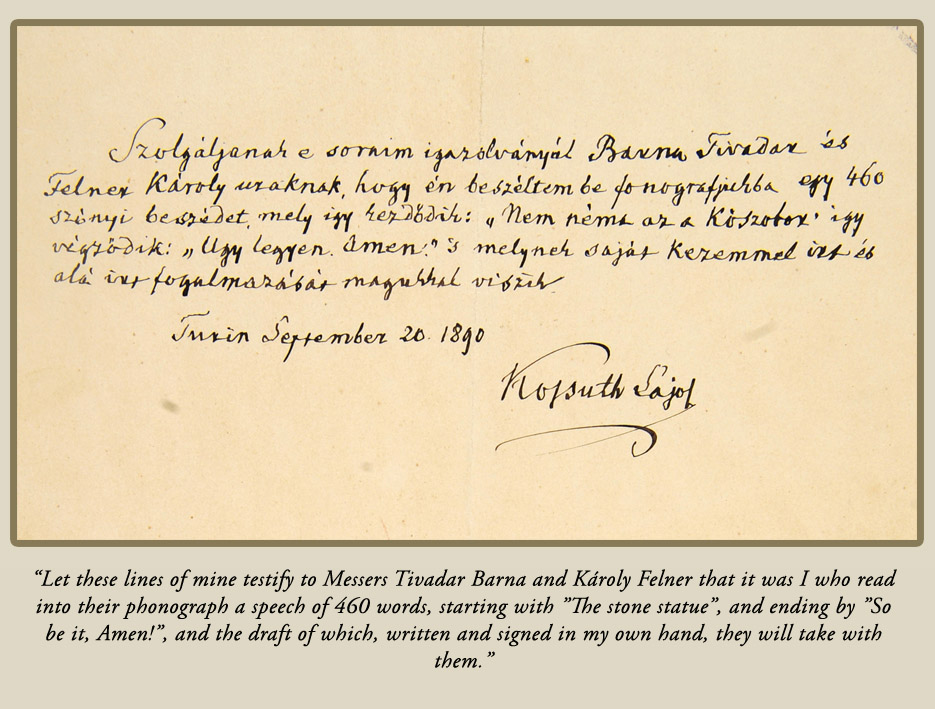 Szolgáljanak e soraim igazolványúl Barna Tivadar és
Felner Károly uraknak, hogy én beszéltem be fonografjukba egy 460
szónyi beszédet, mely igy kezdődik: „Nem néma az a Kőszobor" igy
végződik: „Ugy legyen. Amen!" 's melynek saját kezemmel irt és
alá irt fogalmazását magukkal viszik
Turin September 20. 1890
Kossuth Lajos
“Let these lines of mine testify to Messers Tivadar Barna and Károly Felner that it was I who read
into their phonograph a speech of 460 words, starting with ”The stone statue”, and ending by ”So
be it, Amen!”, and the draft of which, written and signed in my own hand, they will take with
them.”